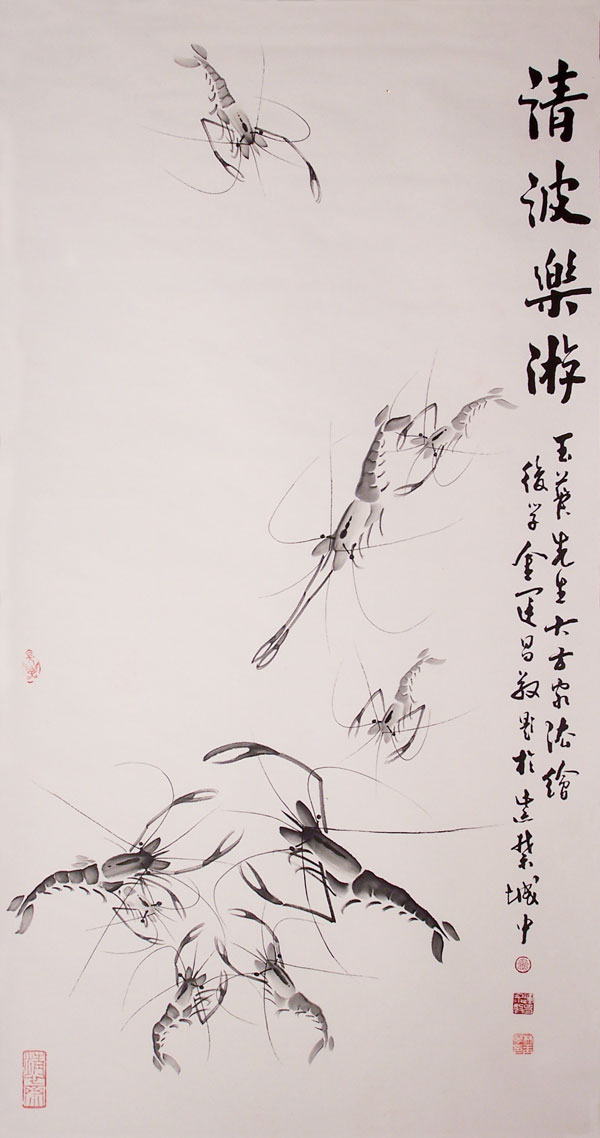 清波樂游
玉葉先生大方家法繪
後学金運昌敬題於紫禁城中